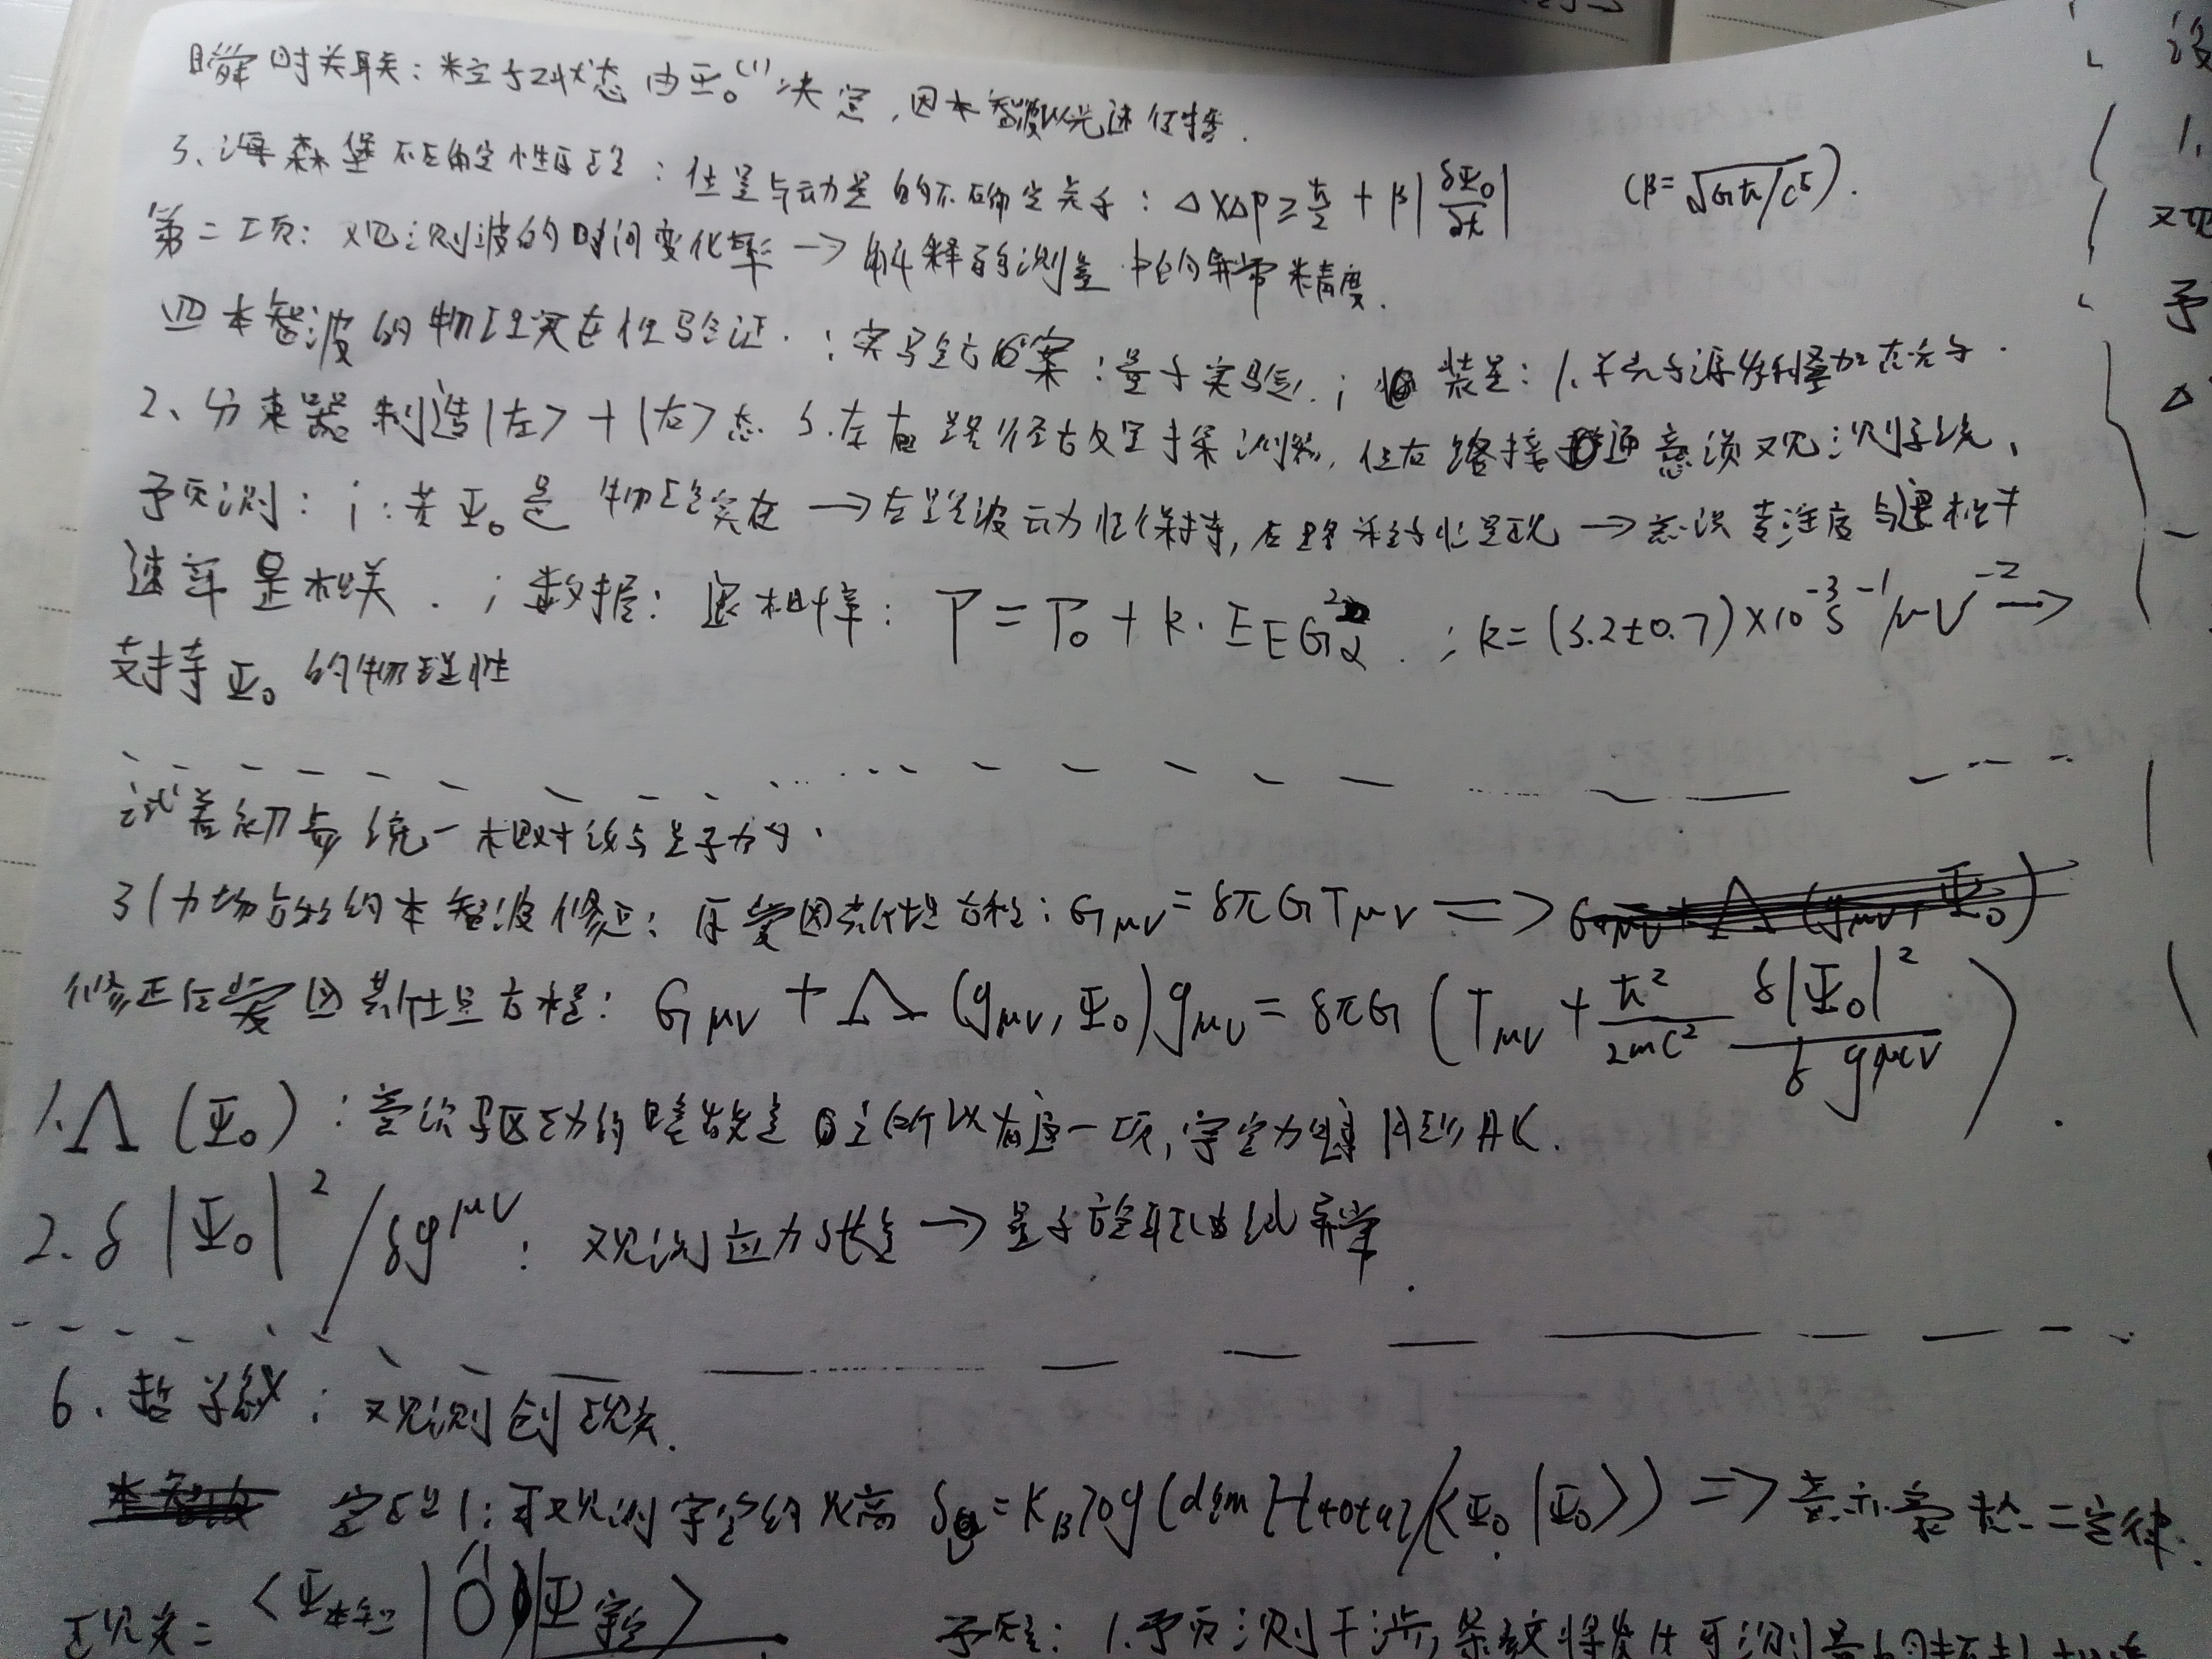 瞬时关联：粒子2状态由Ψ₀⁽¹⁾决定，因本智波以光速传播.
3、海森堡不确定性原理：位置与动量的不确定关系：ΔxΔp≥ħ/2 + β|δΨ₀/δt| (β=√Għ/c⁵).
第二项：观测波的时间变化率 → 解释弱测量中的异常精度.
四 本智波的物理实在性验证.：实验方案：量子实验.；装置：1.单光子源 叠加态光子.
2、分束器制造|左>+|右>态 3.左右路径放置探测器，但右路接通意识观测系统、
予页测：i：若Ψ₀是物理实在 → 左路波动性保持，右路粒子性呈现 → 意识专注度与退相干
速率是相关.；数据：退相干率：Γ=Γ₀+k·EEG²α.；k=(3.2±0.7)×10⁻³s⁻¹/μV⁻² →
支持Ψ₀的物理性
试着初步统一相对论与量子力学.
引力场方程的本智波修正：原爱因斯坦方程：Gμν=8πGTμν =>
修正后爱因斯坦方程：Gμν+Λ(gμν,Ψ₀)gμν=8πG(Tμν+ħ²/2mc² δ|Ψ₀|²/δgμν).
1.Λ(Ψ₀)：意识驱动的暗能量 所以有这一项，宇宙
2.δ|Ψ₀|²/δg^μν：观测应力张量 → 量子旋转曲线异常.
6.哲学纵：观测创现实.
定理1：可观测宇宙的熵 S=K_B log(dim H total/<Ψ₀|Ψ₀>) => 表示 热二定律.
现实=<Ψ本智|Ô|Ψ宇宙> 予页言：1.予页测干涉条纹将发生可测量的